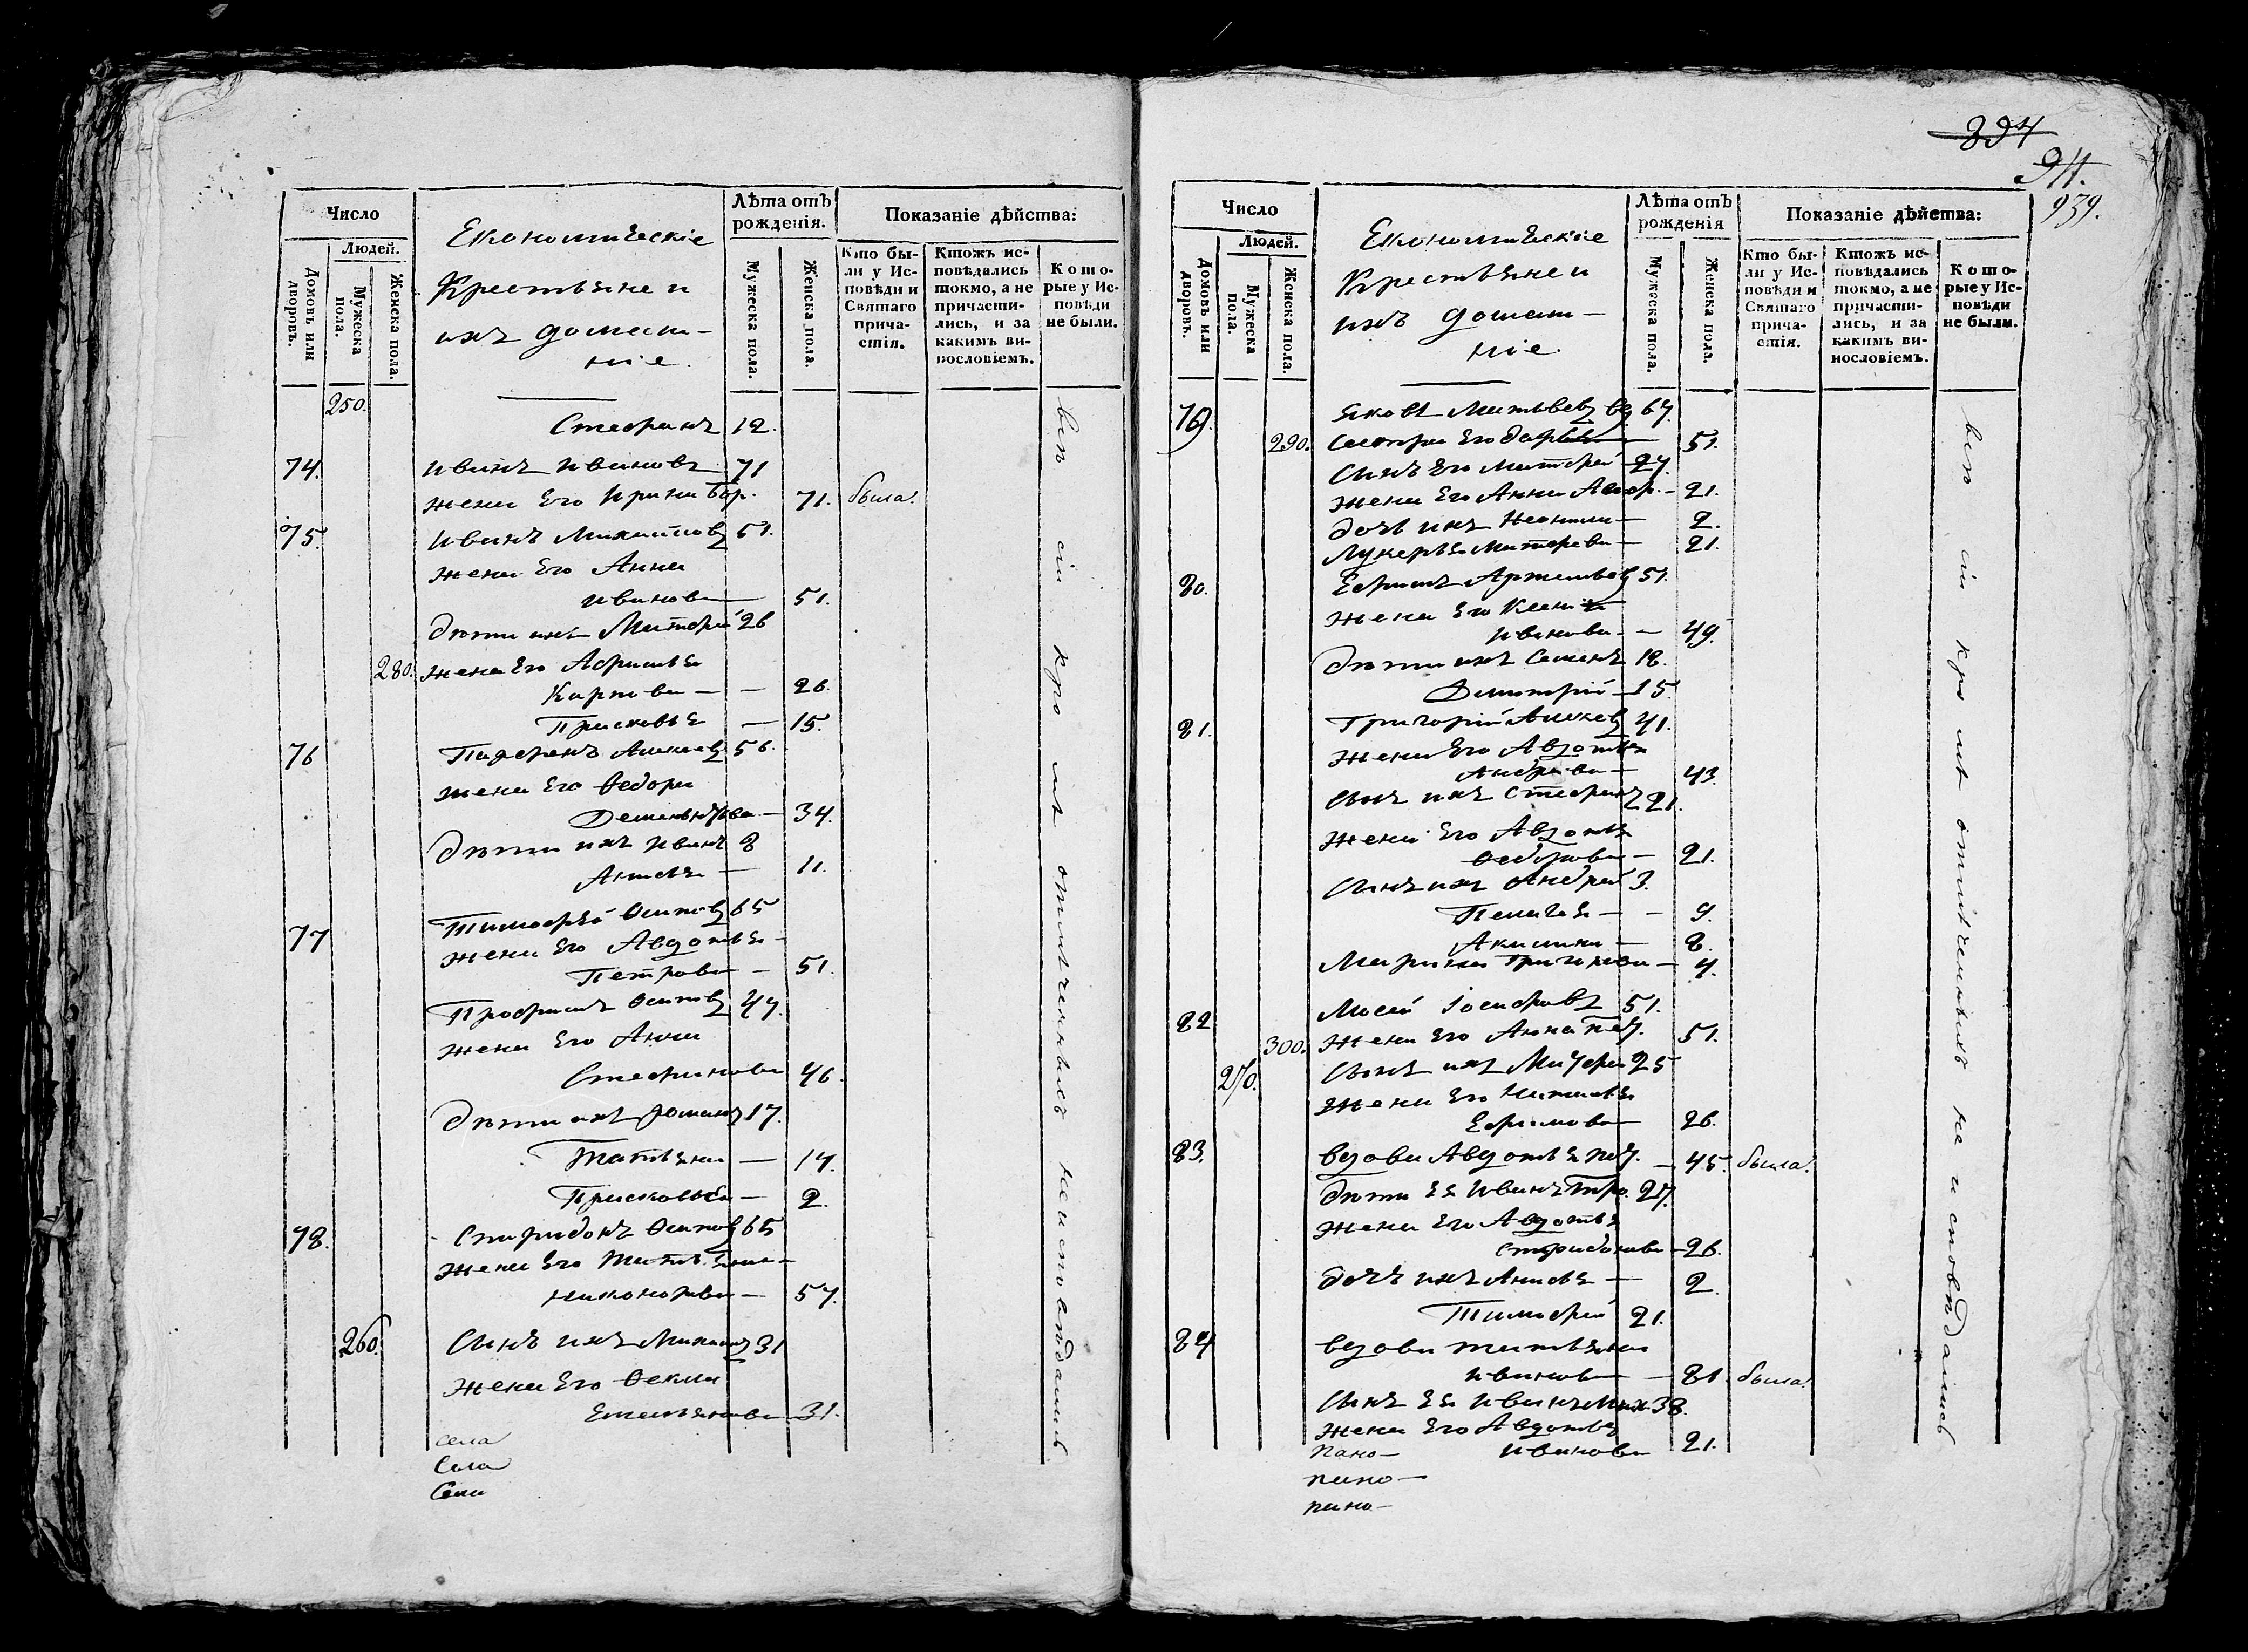 Число
Людей.
Домовъ или дворовъ.
Мужеска пола.
Женска пола.
Економическіе
Крестьяне и
ихъ домаш-
ніе.
Лѣта отъ рожденія.
Мужеска пола.
Женска пола.
Показаніе дѣйства:
Кто бы-
ли у Ис-
повѣди и
Святаго
прича-
стія.
Ктожъ ис-
повѣдались
токмо, а не
причасти-
лись, и за
какимъ ви-
нословіемъ.
Кото-
рые у Ис-
повѣди
не были.
250.
Стефанъ 12.
74. Иванъ Ивановъ 71
жена Его Ирина Гор. 71. была.
75. Иванъ Михайловъ 51.
жена Его Анна
Иванова 51.
дѣти ихъ Матфей 26
280. жена Его Афимья
Карпова — — 26.
Прасковья — 15.
76 Парфенъ Алексеев 56.
жена Его Ѳедора
Дементьева — 34.
дѣти ихъ Иванъ 8
Анисья — 11.
77 Тимофей Осипов 65
жена Его Авдотья —
Петрова — 51.
Профимъ Осипов 47.
жена Его Анна
Стефанова 46.
дѣти ихъ Романъ 17.
Татьяна — 14.
Прасковья — 2.
78. Спиридонъ Осипов 65
жена Его Татьяна —
Никонорова — 57.
260. Сынъ ихъ Михаил 31
жена Его Ѳекла
Емельянова 31.
всѣ сіи кромѣ отмѣченныхъ не исповѣдались
села
Села
Села
394
911.
939.
Число
Людей.
Домовъ или дворовъ.
Мужеска пола.
Женска пола.
Економическіе
Крестьяне и
ихъ домаш-
ніе.
Лѣта отъ рожденія
Мужеска пола.
Женска пола.
Показаніе дѣйства:
Кто бы-
ли у Ис-
повѣди и
Святаго
прича-
стія.
Ктожъ ис-
повѣдались
токмо, а не
причасти-
лись, и за
какимъ ви-
нословіемъ.
Кото-
рые у Ис-
повѣди
не были.
79. Яковъ Матвеев вд 67.
290. Сестра Его Дарья — 51.
Сынъ Его Матфей 27.
жена Его Анна — 21.
дочь ихъ — 2.
Лукерья Матфеева — 21.
80. Ефимъ Артемьев 51.
жена Его Ксенія
Иванова — — 49.
дѣти ихъ Семенъ 18.
Димитрій — 15.
81. Григорій Алексев 41.
жена Его Авдотья
Андреева — 43.
Сынъ ихъ Стефанъ 21.
жена Его Авдотья
Ѳедорова — 21.
Сынъ ихъ Андрей 3.
Пелагея — — 9.
Акилина — 8.
Марина Григорьева — 4.
82 Мосей Іосифовъ 51.
300. жена Его Анна Пет. 51.
270. Сынъ ихъ 25
жена Его Наталья
Ефимова 26.
83. вдова Авдотья Пет. — 45. была.
дѣти Ея Иванъ Тро. 27.
жена Его Авдотья
Спиридонова — 26.
дочь ихъ Анисья — 2.
Тимофей 21.
84 вдова Татьяна
Иванова — 81. была.
Сынъ Ея Иванъ Мих 38.
жена Его Авдотья
Иванова 21.
всѣ сіи кромѣ отмѣченныхъ не исповѣдались
пано—
пано—
пано—